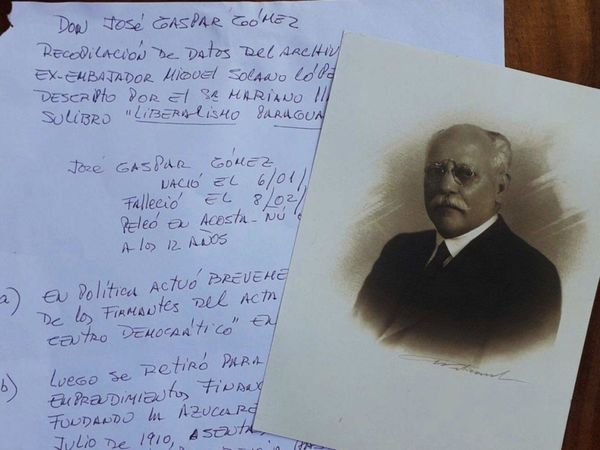 DON JOSÉ GASPAR GÓMEZ
RECOPILACIÓN DE DATOS DEL ARCHIV
EX-EMBAJADOR MIGUEL SOLANO LÓPE
DESCRIPTO POR EL SR MARIANO
SU LIBRO "LIBERALISMO PARAGUA
JOSÉ GASPAR GÓMEZ
NACIÓ EL 6/01/
FALLECIÓ EL 8/02/
PELEÓ EN ACOSTA-ÑÚ
A LOS 12 AÑOS
a) EN POLÍTICA ACTUÓ BREVEME
DE LOS FIRMANTES DEL ACTA
CENTRO DEMOCRÁTICO" EN
b) LUEGO SE RETIRÓ PARA
EMPRENDIMIENTOS FINANC
FUNDANDO LA AZUCARE
JULIO DE 1910, ASENTA